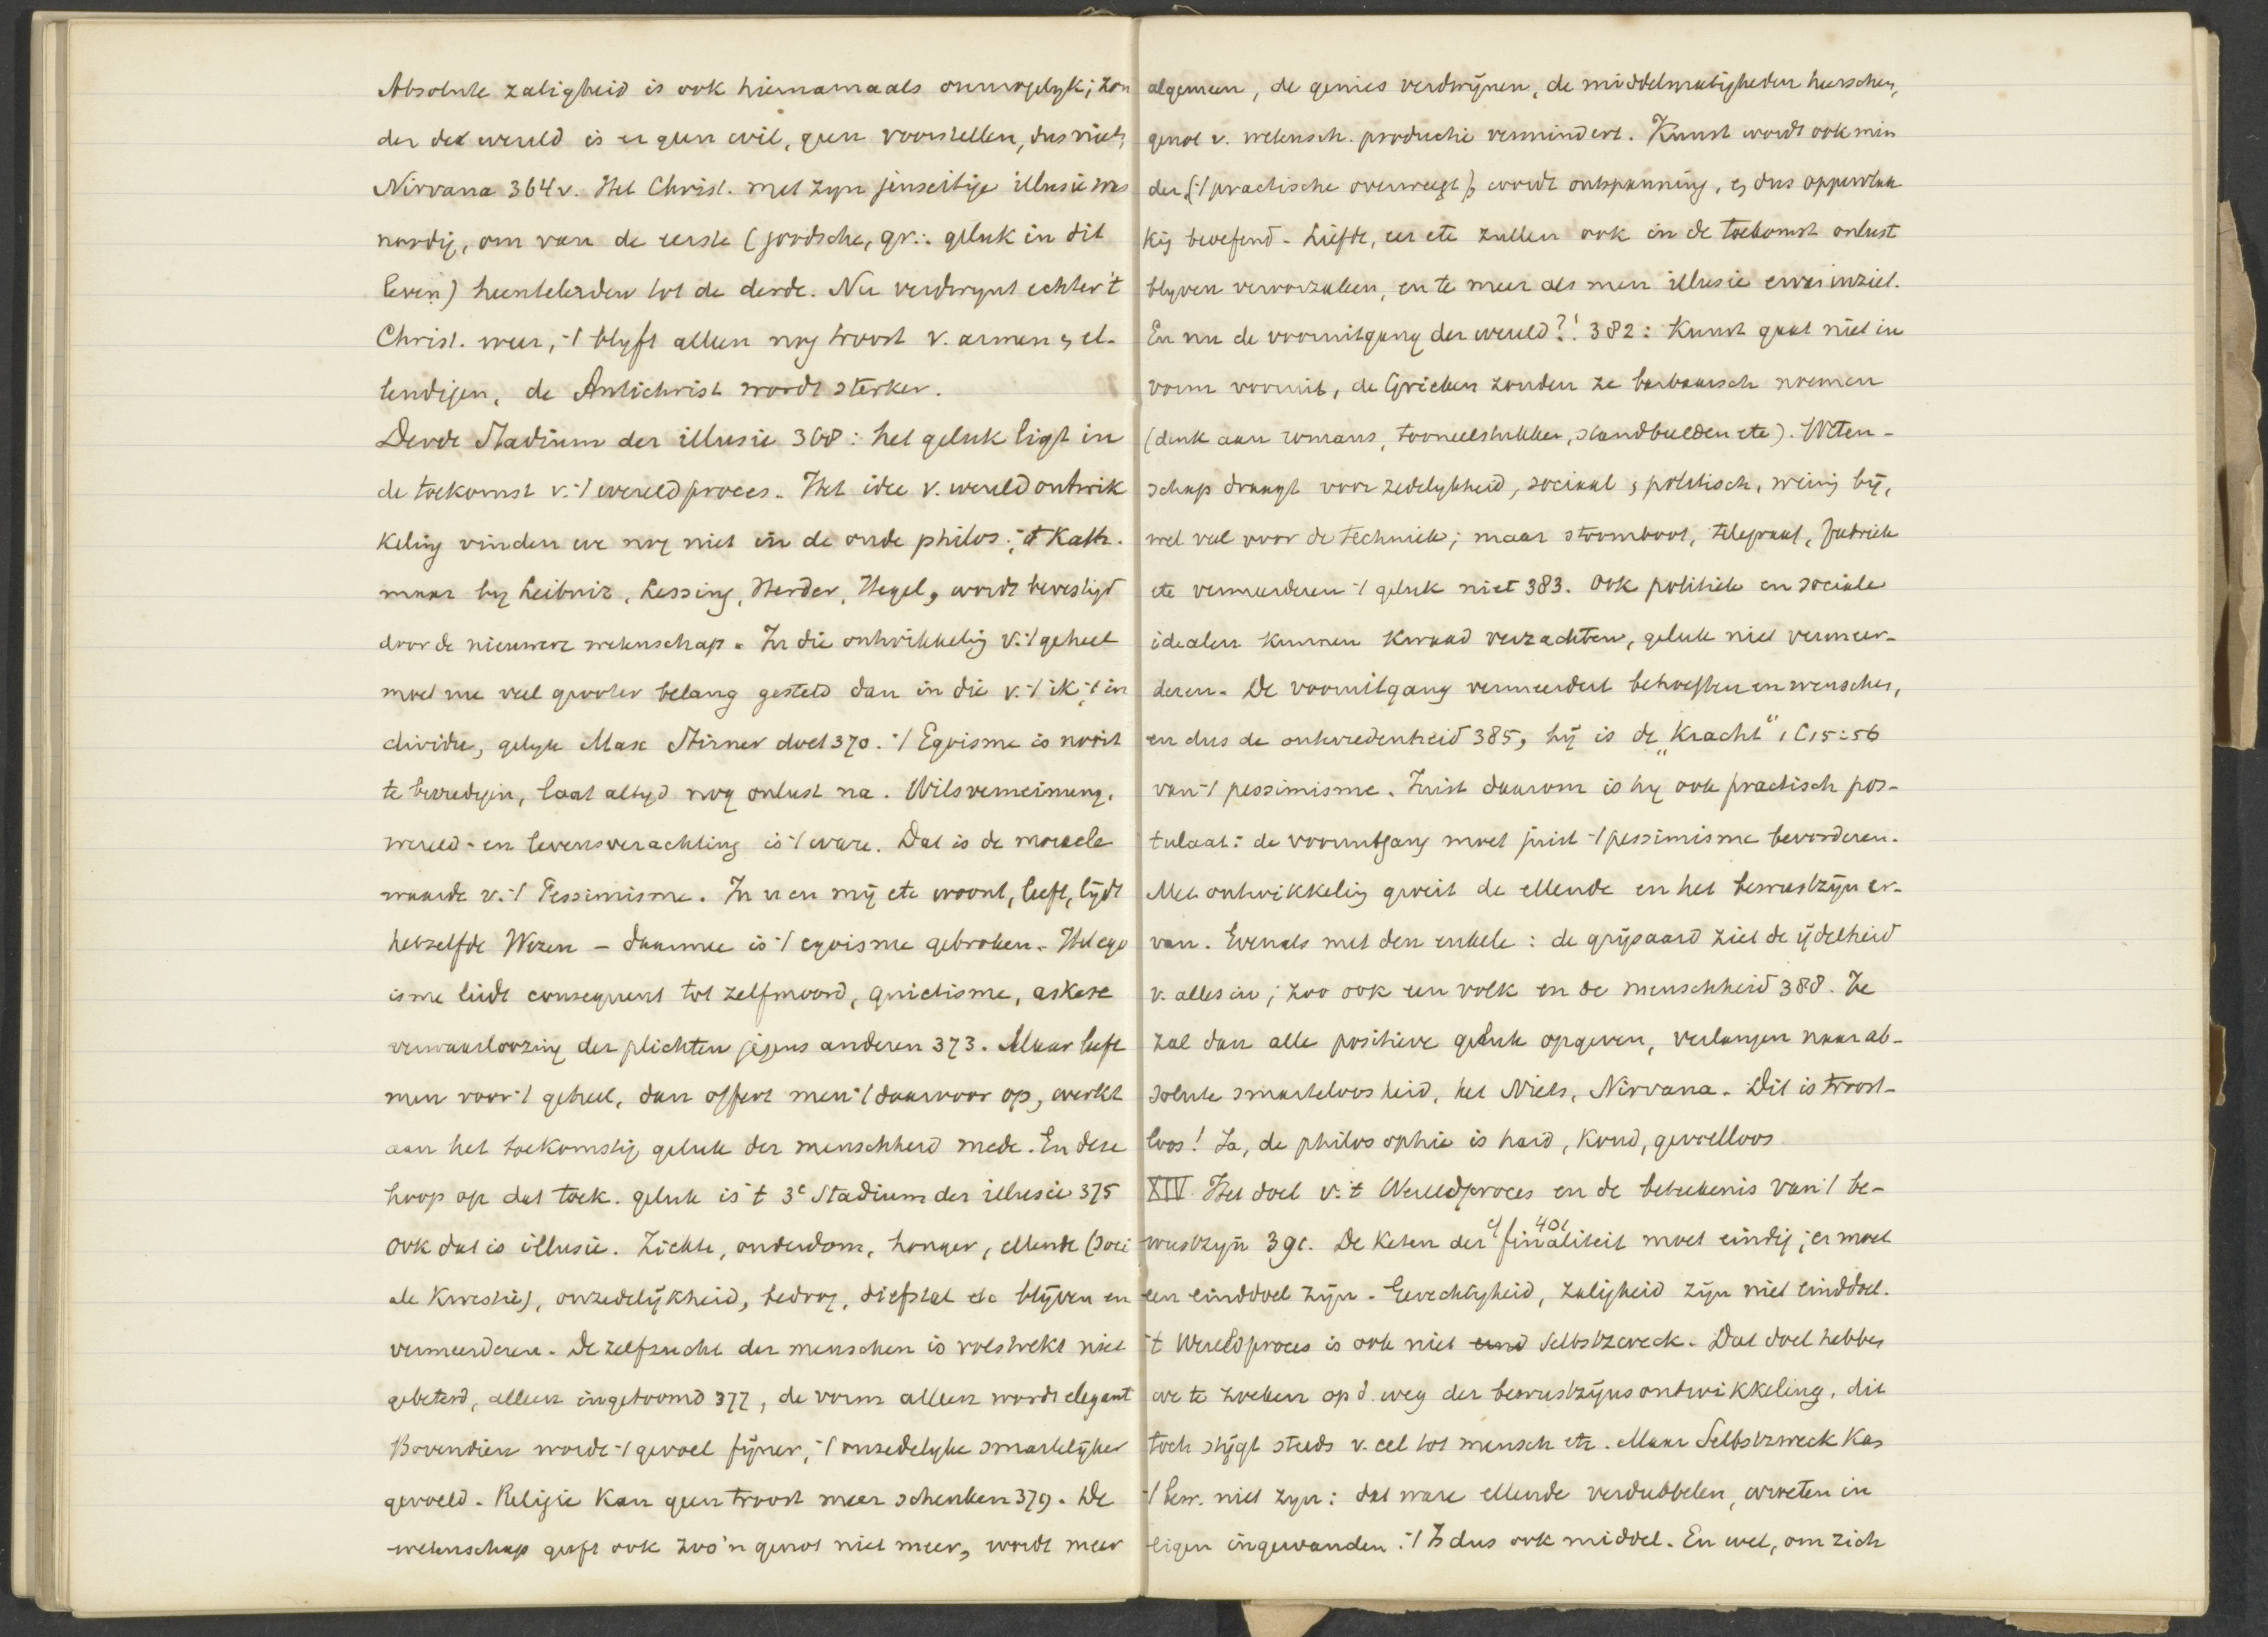 Absolute zaligheid is ook hiernamaals onmogelyk; zon
der deze wereld is er geen wil, geen voorstellen, dus niets,
Nirvana 364v. Het Christ. met zyn jenseitige illusie was
noodig, om van de eerste (joodsche, gr.: geluk in dit
leven) heentelerden tot de derde. Nu verdwynt echter 't
Christ. weer, 't blyft alleen nog troost v. armen & el-
lendigen, de Antichrist wordt sterker.
Derde Stadium der illusie 368: het geluk ligt in
de toekomst v. 't wereldproces. Het idee v. wereldontwik
keling vinden we nog niet in de oude philos., 't Kath.
maar by Leibniz, Lessing, Herder, Hegel, wordt bevestigd
door de nieuwere wetenschap. In die ontwikkelig v. 't geheel
moet nu veel grooter belang gesteld dan in die v. 't ik, 't in
dividu, gelyk Max Stirner doet 370. 't Egoisme is nooit
te bevredigen, laat altyd nog onlust na. Wilsverneinung,
wereld- en levensverachting is 't ware. Dat is de moreele
waarde v. 't Pessimisme. In u en mij etc woont, leeft, lijdt
hetzelfde Wezen – daarmee is 't egoisme gebroken. Het ego
isme leidt consequent tot zelfmoord, quietisme, askese
verwaarloozing der plichten jegens anderen 373. Maar leeft
men voor 't geheel, dan offert men 't daarvoor op, werkt
aan het toekomstig geluk der menschheid mede. En deze
hoop op dat toek. geluk is 't 3e Stadium der illusie 375
Ook dat is illusie. Ziekte, ouderdom, honger, ellende (soci
ale kwestie), onzedelijkheid, bedrog, diefstal etc blijven en
vermeerderen. De zelfzucht der menschen is volstrekt niet
gebeterd, alleen ingetoomd 377, de vorm alleen wordt elegant
Bovendien wordt 't gevoel fijner, 't onzedelyke smartelijker
gevoeld. Religie kan geen troost meer schenken 379. De
wetenschap geeft ook zoo'n genot niet meer, wordt meer
algemeen, de genies verdwijnen, de middelmatigheden heerschen,
genot v. wetensch. productie vermindert. Kunst wordt ook min
der ('t practische overweegt), wordt ontspanning, & dus oppervlak
kig beoefend. Liefde, eer etc zullen ook in de toekomst onlust
blyven veroorzaken, en te meer als men illusie ervan inziet.
En nu de vooruitgang der wereld?! 382: Kunst gaat niet in
vorm vooruit, de Grieken zouden ze barbaarsch noemen
(denk aan romans, tooneelstukken, standbeelden etc). Weten-
schap draagt voor zedelykheid, sociaal & politisch, weinig bij,
wel veel voor de techniek; maar stoomboot, telegraaf, fabriek
etc vermeerderen 't geluk niet 383. Ook politieke en sociale
idealen kunnen kwaad verzachten, geluk niet vermeer-
deren. De vooruitgang vermeerdert behoeften en wenschen,
en dus de ontevredenheid 385, hij is de „Kracht" 1 C 15:56
van 't pessimisme. Juist daarom is hy ook practisch pos-
tulaat: de vooruitgang moet juist 't pessimisme bevorderen.
Met ontwikkelig groeit de ellende en het bewustzijn er-
van. Evenals met den enkele: de grijsaard ziet de ijdelheid
v. alles in; zoo ook een volk en de menschheid 388. Ze
zal dan alle positieve geluk opgeven, verlangen naar ab-
solute smarteloosheid, het Niets, Nirvana. Dit is troost-
loos! Ja, de philosophie is hard, koud, gevoelloos
XIV. Het doel v. 't Wereldproces en de beteekenis van 't be-
wustzyn 391. De keten der finaliteit cf 401 moet eindig; er moet
een einddoel zijn. Gerechtigheid, zaligheid zijn niet einddoel.
't Wereldproces is ook niet Selbstzweck. Dat doel hebben
we te zoeken op d. weg der bewustzijnsontwikkeling, dit
toch stijgt steeds v. cel tot mensch etc. Maar Selbstzweck kan
't bew. niet zyn: dat ware ellende verdubbelen, wroeten in
eigen ingewanden. 't Is dus ook middel. En wel, om zich